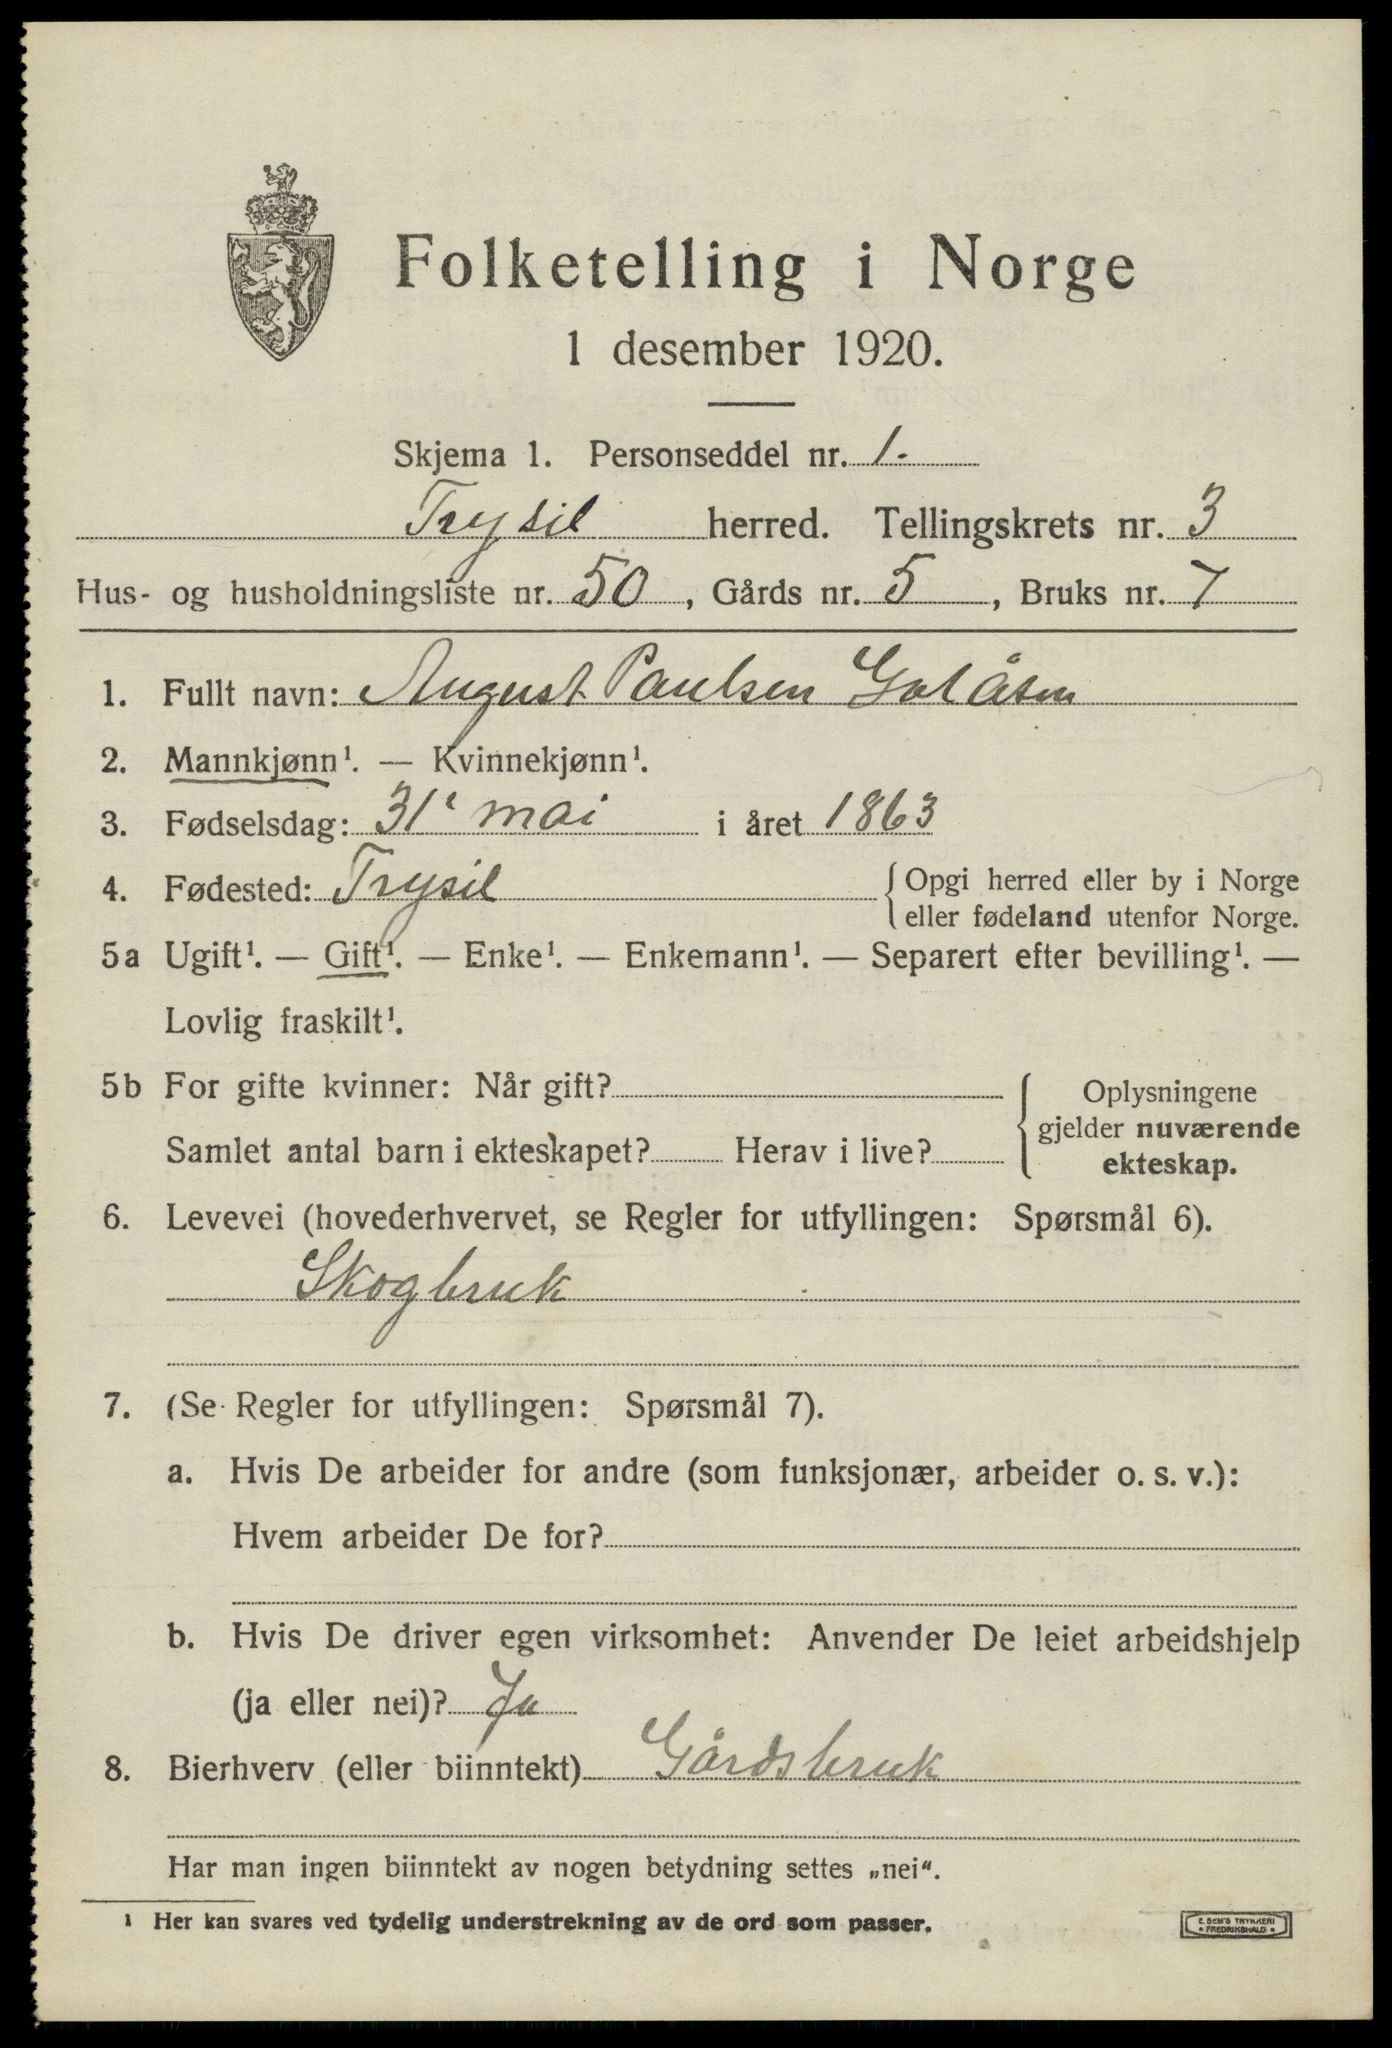 Folketelling i Norge
1 desember 1920.
Skjema 1. Personseddel nr. 1.
Trysil herred. Tellingskrets nr. 3
Hus- og husholdningsliste nr. 50, Gårds nr. 5, Bruks nr. 7
1. Fullt navn: August Paulsen Galåsen
2. Mannkjønn¹. — Kvinnekjønn¹.
3. Fødselsdag: 31' mai i året 1863
4. Fødested: Trysil { Opgi herred eller by i Norge
eller fødeland utenfor Norge.
5a Ugift¹. — Gift¹. — Enke¹. — Enkemann¹. — Separert efter bevilling¹. —
Lovlig fraskilt¹.
5b For gifte kvinner: Når gift?
Samlet antal barn i ekteskapet? Herav i live?
{ Oplysningene
gjelder nuværende
ekteskap.
6. Levevei (hovederhvervet, se Regler for utfyllingen: Spørsmål 6).
Skogbruk
7. (Se Regler for utfyllingen: Spørsmål 7).
a. Hvis De arbeider for andre (som funksjonær, arbeider o. s. v.):
Hvem arbeider De for?
b. Hvis De driver egen virksomhet: Anvender De leiet arbeidshjelp
(ja eller nei)? Ja
8. Bierhverv (eller biinntekt) Gårdsbruk
Har man ingen biinntekt av nogen betydning settes „nei“.
¹ Her kan svares ved tydelig understrekning av de ord som passer.
E. SEM'S TRYKKERI
• FREDRIKSHALD •